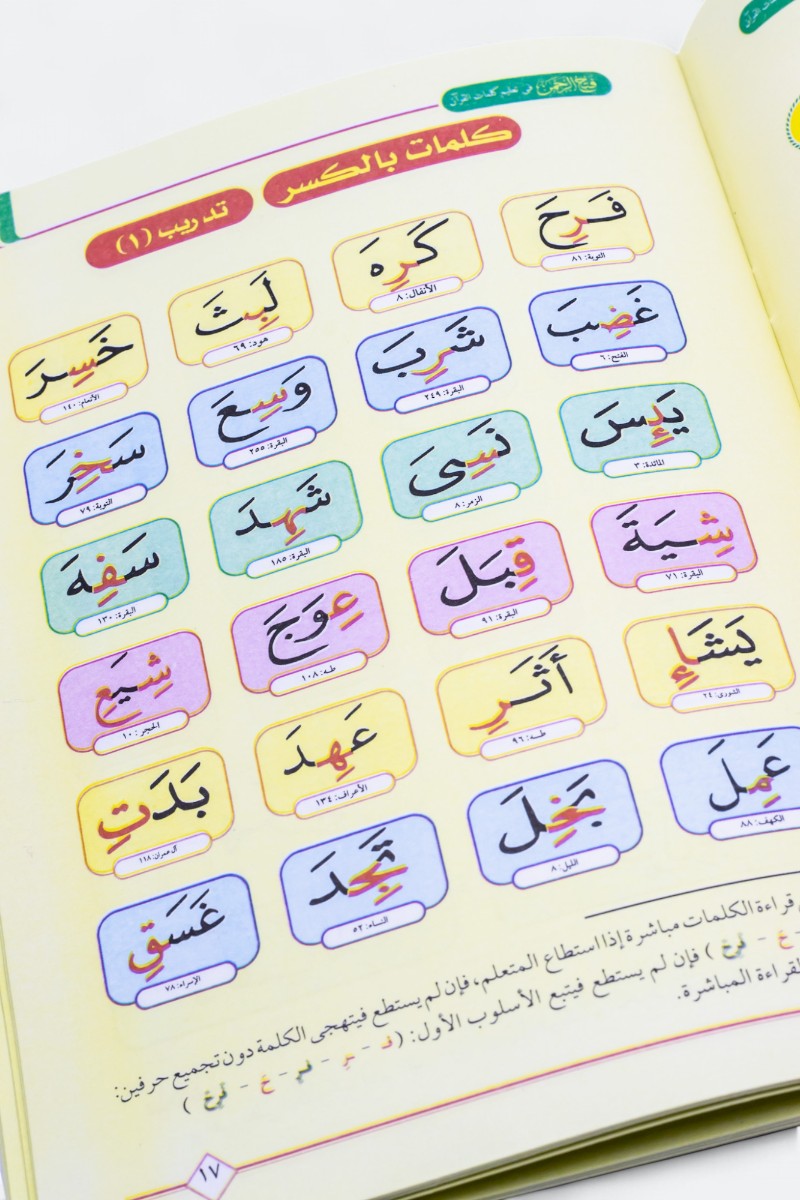 فتح الرحمن فى تعليم كلمات القرآن
كلمات بالكسر تدريب (١)
فَرِحَ كَرِهَ لَبِثَ خَسِرَ
التوبة: ٨١ الأنفال: ٨ هود: ٦٩ الأنعام: ١٤٠
غَضِبَ شَرِبَ وَسِعَ سَخِرَ
الفتح: ٦ البقرة: ٢٤٩ البقرة: ٢٥٥ التوبة: ٧٩
يَئِسَ نَسِىَ شَهِدَ سَفِهَ
المائدة: ٣ الزمر: ٨ البقرة: ١٨٥ البقرة: ١٣٠
شِيَةَ قِبَلَ عِوَجَ شِيَعِ
البقرة: ٧١ البقرة: ٩١ طه: ١٠٨ الحجر: ١٠
يَشَإِ أَثَرِ عَهِدَ بَدَتِ
الشورى: ٢٤ طه: ٩٦ الأعراف: ١٣٤ آل عمران: ١١٨
عَمِلَ بَخِلَ تَجِدَ غَسَقِ
الكهف: ٨٨ الليل: ٨ النساء: ٥٢ الإسراء: ٧٨
قراءة الكلمات مباشرة إذا استطاع المتعلم، فإن لم يستطع فيتهجى الكلمة دون تجميع حرفين:
- حَ - فَرِحَ ) فإن لم يستطع فيتبع الأسلوب الأول: (فَـ - ـرِ - فَرِ - حَ - فَرِحَ )
القراءة المباشرة.
١٧